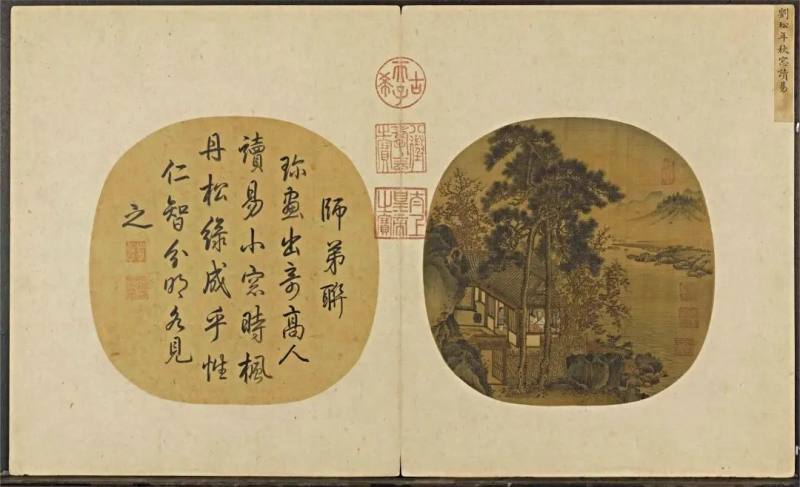 劉松年秋窓讀易
古希天子
八徵耄念之寶
太上皇帝之寶
師弟聯
珎畫出奇高人
讀易小窓時楓
丹松綠成乎性
仁智分明各見
之